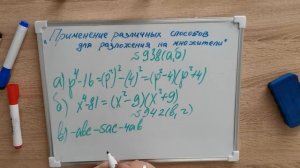 "Применение различных способов
для разложения на множители"
§ 938(а,б)
а) p⁴-16 = (p²)² - (4)² = (p²-4)(p²+4)
б) x⁴-81 = (x²-9)(x²+9)
§ 942(в, г)
в) -abc-5ac-4ab